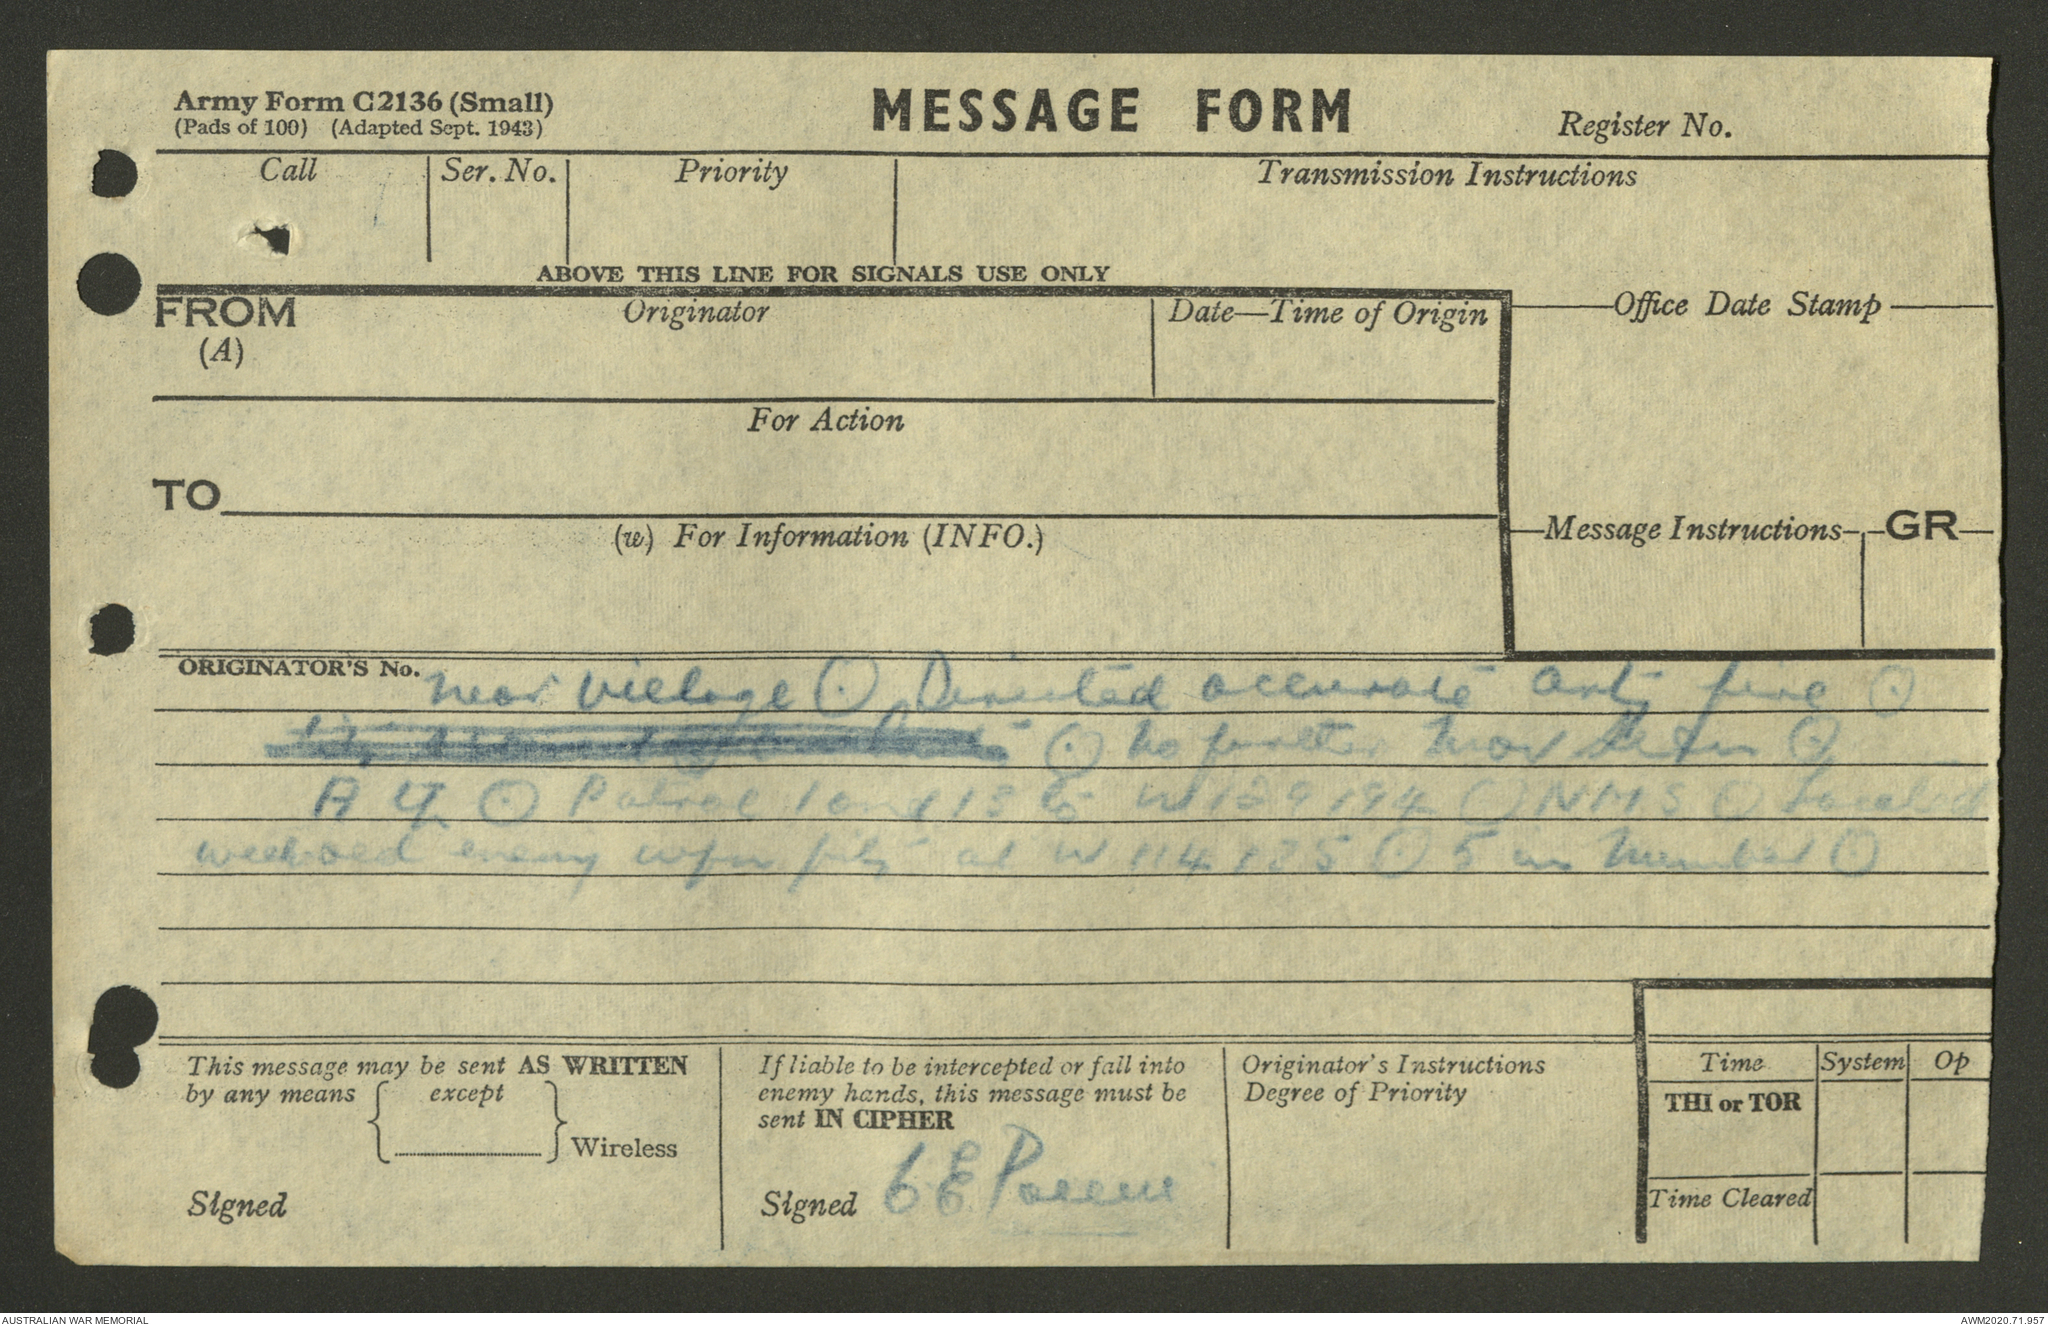 Army Form C2136 (Small)
(Pads of 100) (Adapted Sept. 1943)
MESSAGE FORM
Register No.
Call
Ser. No.
Priority
Transmission Instructions
ABOVE THIS LINE FOR SIGNALS USE ONLY
FROM
(A)
Originator
Date—Time of Origin
Office Date Stamp
For Action
TO
(w) For Information (INFO.)
Message Instructions
GR
ORIGINATOR'S No.
near village ⊙ Directed accurate arty fire ⊙
⊙ No further
⊙ Patrol 1 and 13 to W 129194 ⊙ NMS ⊙ Located
enemy wpn pits at W 114125 ⊙ 5 in number ⊙
This message may be sent AS WRITTEN
by any means except
Wireless
Signed
If liable to be intercepted or fall into
enemy hands, this message must be
sent IN CIPHER
Signed
Originator's Instructions
Degree of Priority
Time
System
Op
THI or TOR
Time Cleared
AUSTRALIAN WAR MEMORIAL
AWM2020.71.957